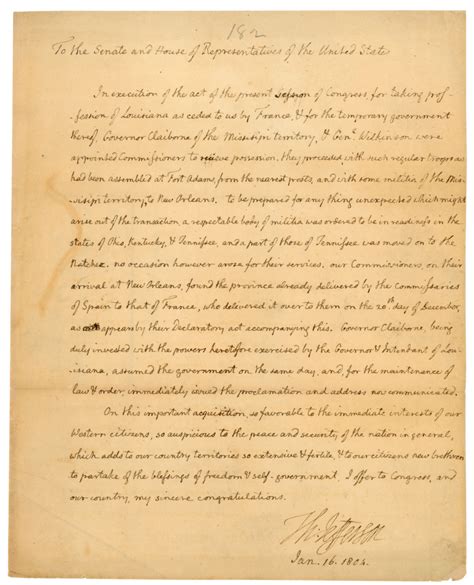 182
To the Senate and House of Representatives of the United State
In execution of the act of the present session of Congress for taking pos-
session of Louisiana as ceded to us by France, & for the temporary government
thereof, Governor Claiborne of the Missisipi territory, & Genl. Wilkinson were
appointed Commissioners to recieve possession. they proceeded with such regular troops as
had been assembled at Fort Adams from the nearest posts, and with some militia of the Mis-
sisipi territory, to New Orleans. to be prepared for any thing unexpected which might
arise out of the transaction, a respectable body of militia was ordered to be in readiness in the
states of Ohio, Kentucky, & Tennissee, and a part of those of Tennissee was moved on to the
Natchez. no occasion however arose for their services. our Commissioners, on their
arrival at New Orleans, found the province already delivered by the Commissaries
of Spain to that of France, who delivered it over to them on the 20th day of December,
as appears by their Declaratory act accompanying this. Governor Claiborne, being
duly invested with the powers heretofore exercised by the Governor & Intendant of Lou-
isiana, assumed the government on the same day, and for the maintenance of
law & order, immediately issued the proclamation and address now communicated.
On this important acquisition, so favorable to the immediate interests of our
Western citizens, so auspicious to the peace and security of the nation in general,
which adds to our country territories so extensive & fertile, & to our citizens new brethren
to partake of the blessings of freedom & self-government, I offer to Congress, and
our country, my sincere congratulations.
Th: Jefferson
Jan. 16. 1804.